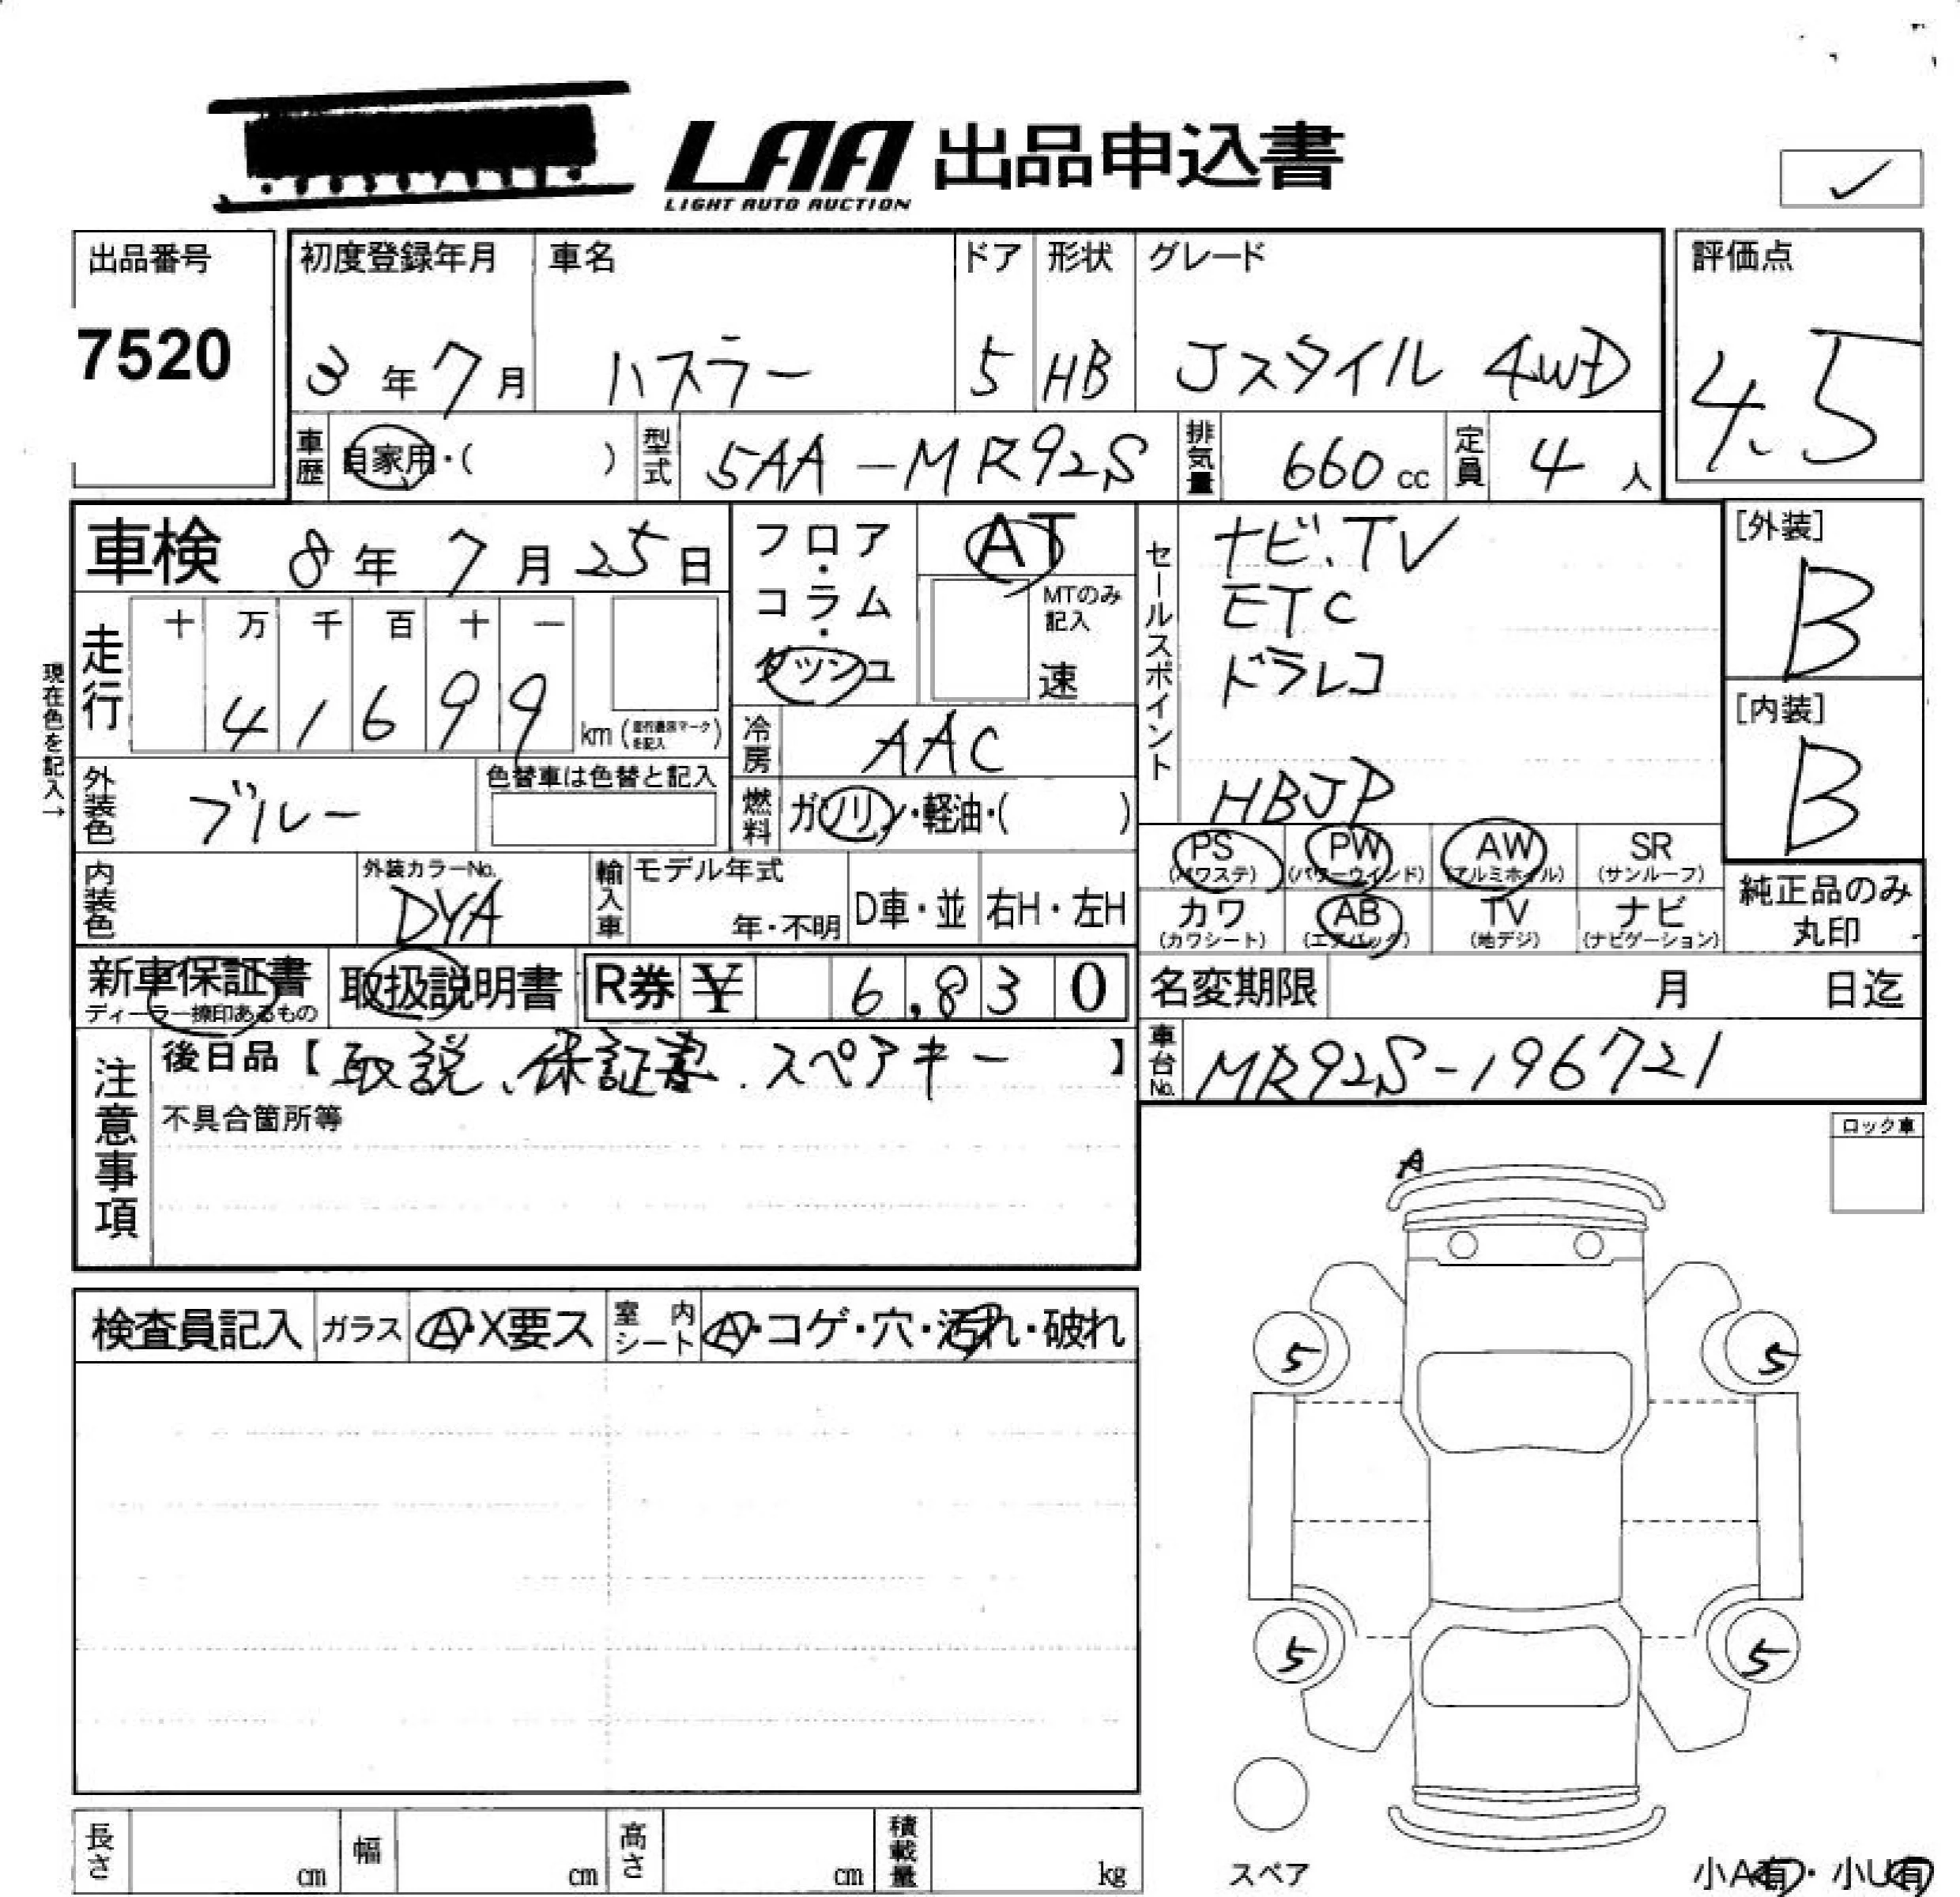 LAA 出品申込書
LIGHT AUTO AUCTION
✓
出品番号
7520
初度登録年月
3年7月
車名
ハスラー
ドア
5
形状
HB
グレード
Jスタイル 4WD
評価点
4.5
車歴
自家用・( )
型式
5AA-MR92S
排気量
660cc
定員
4人
車検 8年7月25日
フロア・コラム・ダッシュ
AT
MTのみ記入
速
セールスポイント
ナビ.TV
ETC
ドラレコ
HBJP
[外装]
B
[内装]
B
現在色を記入→
走行
十 万 千 百 十 一
4 1 6 9 9
km
冷房
AAC
外装色
ブルー
色替車は色替と記入
燃料
ガソリン・軽油・( )
PS
(パワステ)
PW
(パワーウインド)
AW
(アルミホイル)
SR
(サンルーフ)
カワ
(カワシート)
AB
(エアバッグ)
TV
(地デジ)
ナビ
(ナビゲーション)
純正品のみ
丸印
内装色
外装カラーNo.
DYA
輸入車
モデル年式
年・不明
D車・並
右H・左H
新車保証書
ディーラー捺印あるもの
取扱説明書
R券 ¥ 6,830
名変期限 月 日迄
注意事項
後日品【取説、保証書.スペアキー】
不具合箇所等
車台No.
MR92S-196721
ロック車
A
検査員記入
ガラス
A・X要ス
室内シート
A・コゲ・穴・汚れ・破れ
5
5
5
5
スペア
長さ cm
幅 cm
高さ cm
積載量 kg
小A有・小U有